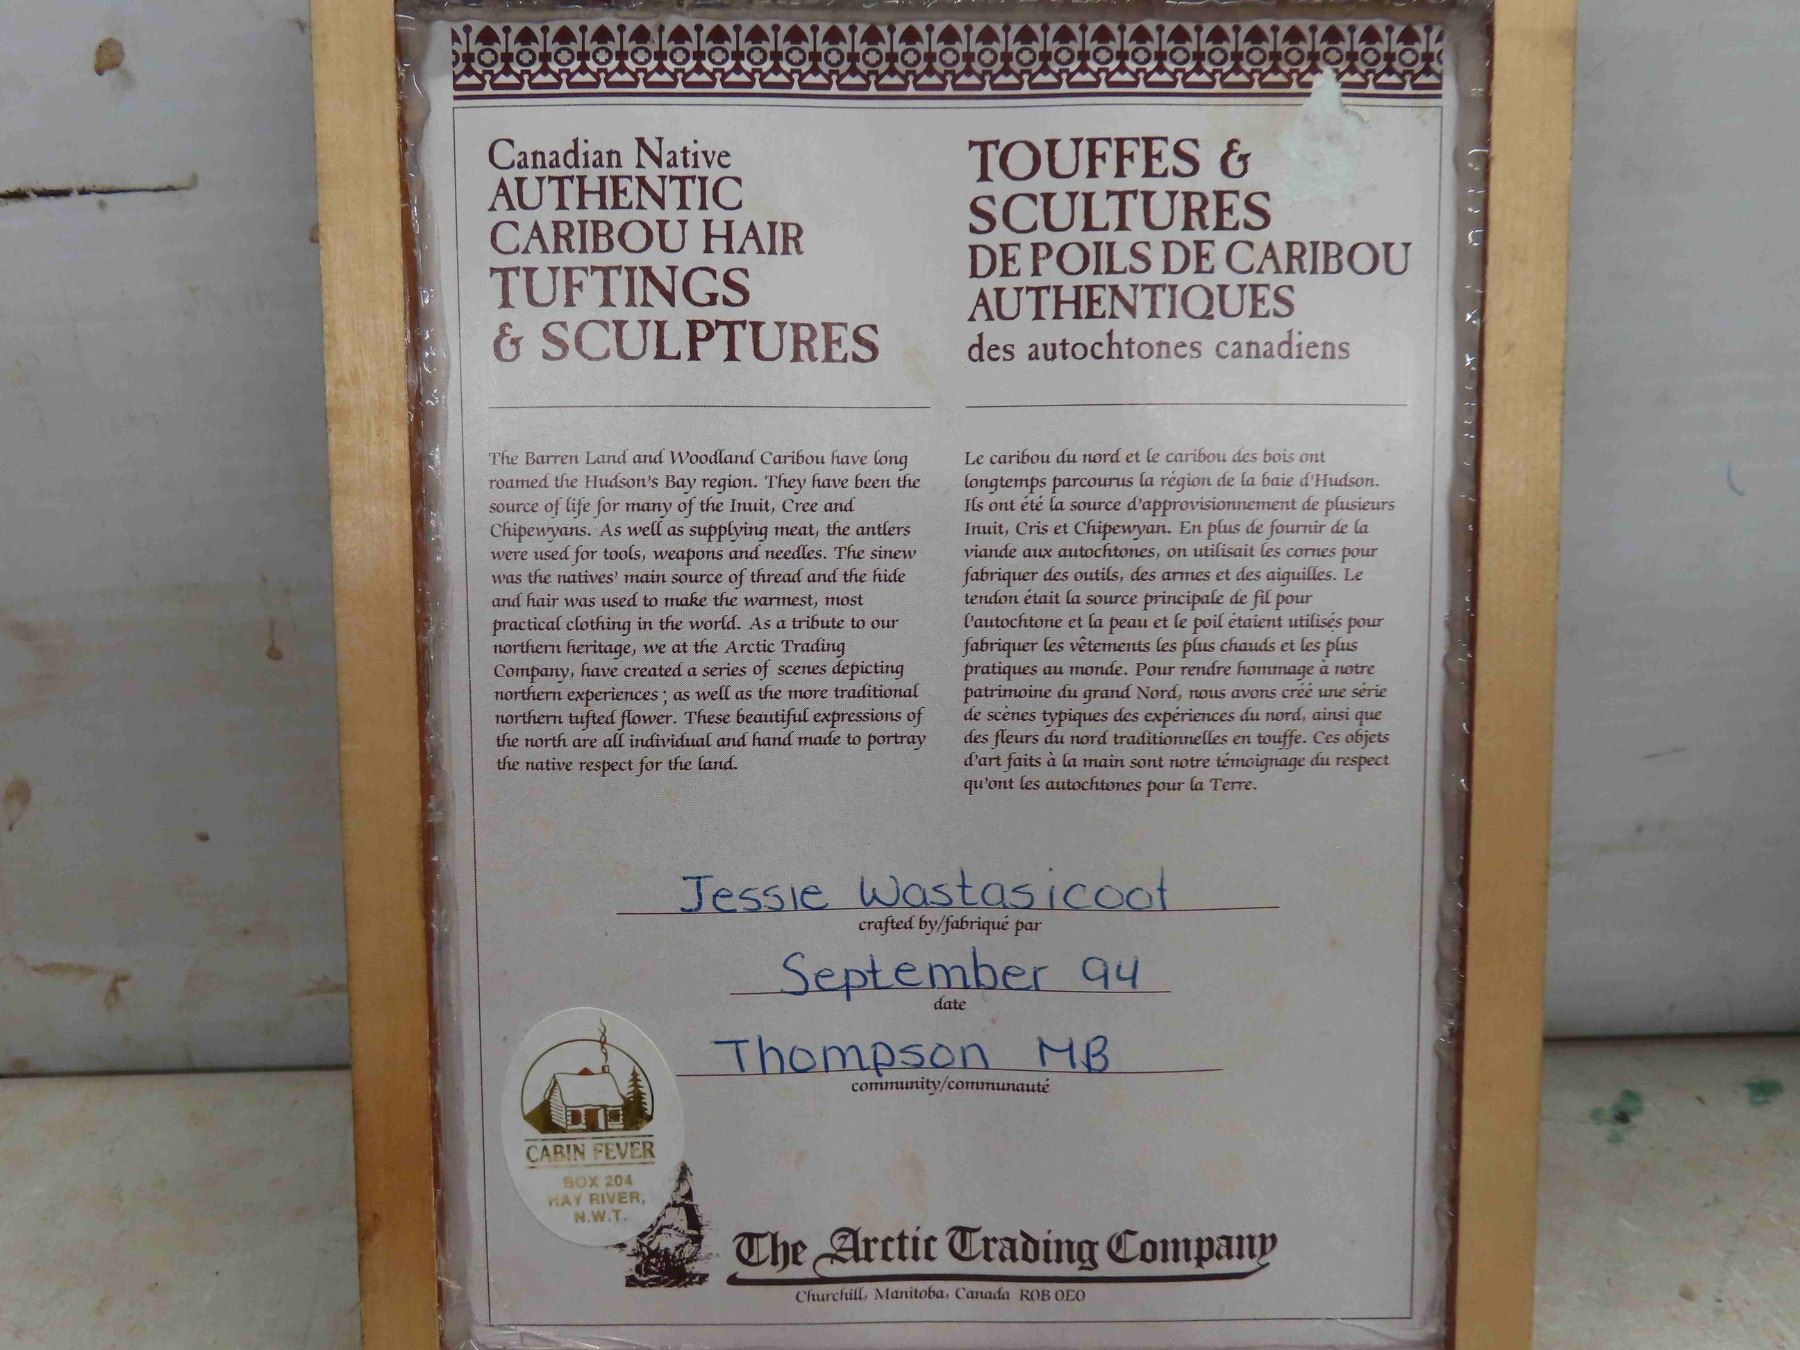 Canadian Native
AUTHENTIC
CARIBOU HAIR
TUFTINGS
& SCULPTURES
The Barren Land and Woodland Caribou have long
roamed the Hudson's Bay region. They have been the
source of life for many of the Inuit, Cree and
Chipewyans. As well as supplying meat, the antlers
were used for tools, weapons and needles. The sinew
was the natives' main source of thread and the hide
and hair was used to make the warmest, most
practical clothing in the world. As a tribute to our
northern heritage, we at the Arctic Trading
Company, have created a series of scenes depicting
northern experiences ; as well as the more traditional
northern tufted flower. These beautiful expressions of
the north are all individual and hand made to portray
the native respect for the land.
TOUFFES &
SCULTURES
DE POILS DE CARIBOU
AUTHENTIQUES
des autochtones canadiens
Le caribou du nord et le caribou des bois ont
longtemps parcourus la région de la baie d'Hudson.
Ils ont été la source d'approvisionnement de plusieurs
Inuit, Cris et Chipewyan. En plus de fournir de la
viande aux autochtones, on utilisait les cornes pour
fabriquer des outils, des armes et des aiguilles. Le
tendon était la source principale de fil pour
l'autochtone et la peau et le poil étaient utilisés pour
fabriquer les vêtements les plus chauds et les plus
pratiques au monde. Pour rendre hommage à notre
patrimoine du grand Nord, nous avons créé une série
de scènes typiques des expériences du nord, ainsi que
des fleurs du nord traditionnelles en touffe. Ces objets
d'art faits à la main sont notre témoignage du respect
qu'ont les autochtones pour la Terre.
Jessie Wastasicoot
crafted by/fabriqué par
September 94
date
Thompson MB
community/communauté
CABIN FEVER
BOX 204
HAY RIVER,
N.W.T.
The Arctic Trading Company
Churchill, Manitoba, Canada R0B 0E0